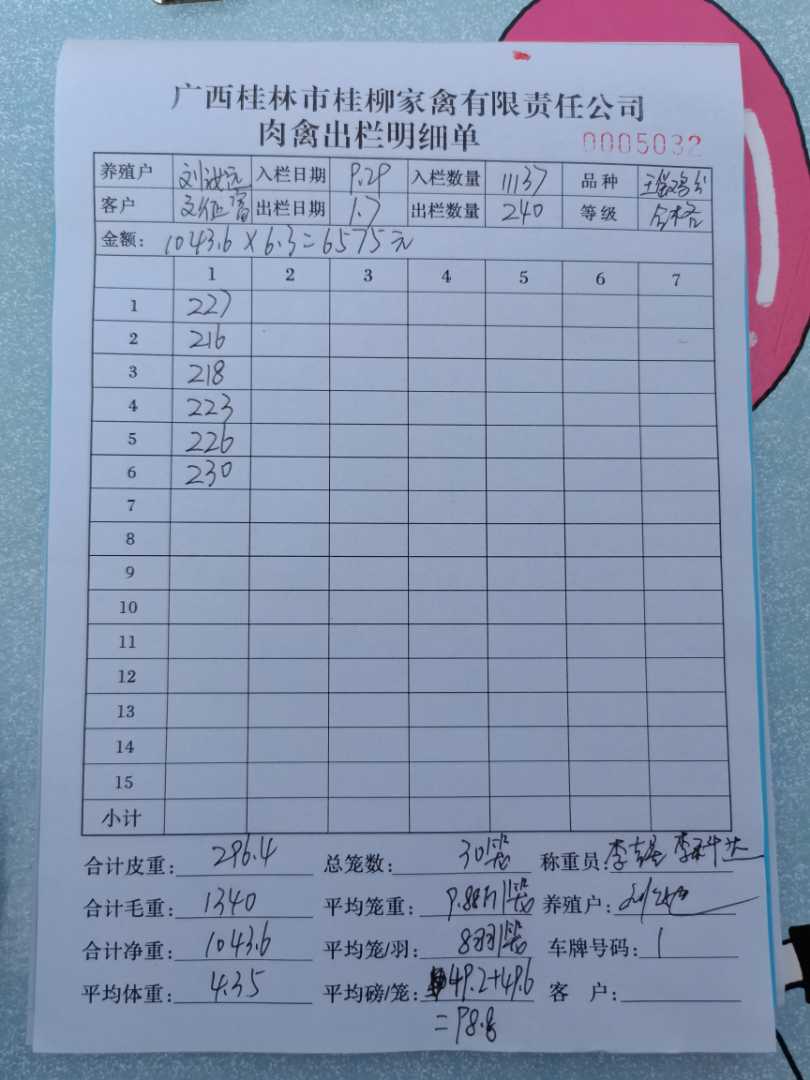 广西桂林市桂柳家禽有限责任公司
肉禽出栏明细单 0005032
养殖户 入栏日期 9.29 入栏数量 11137 品种
客户 出栏日期 1.7 出栏数量 240 等级 合格
金额: 1043.6 × 6.3 = 6575元
1 2 3 4 5 6 7
1 227
2 216
3 218
4 223
5 226
6 230
7
8
9
10
11
12
13
14
15
小计
合计皮重: 296.4 总笼数: 30笼 称重员: 李
合计毛重: 1340 平均笼重: 9.88斤/笼 养殖户:
合计净重: 1043.6 平均笼/羽: 8羽/笼 车牌号码: 1
平均体重: 4.35 平均磅/笼: 49.2+49.6 客 户:
=98.8